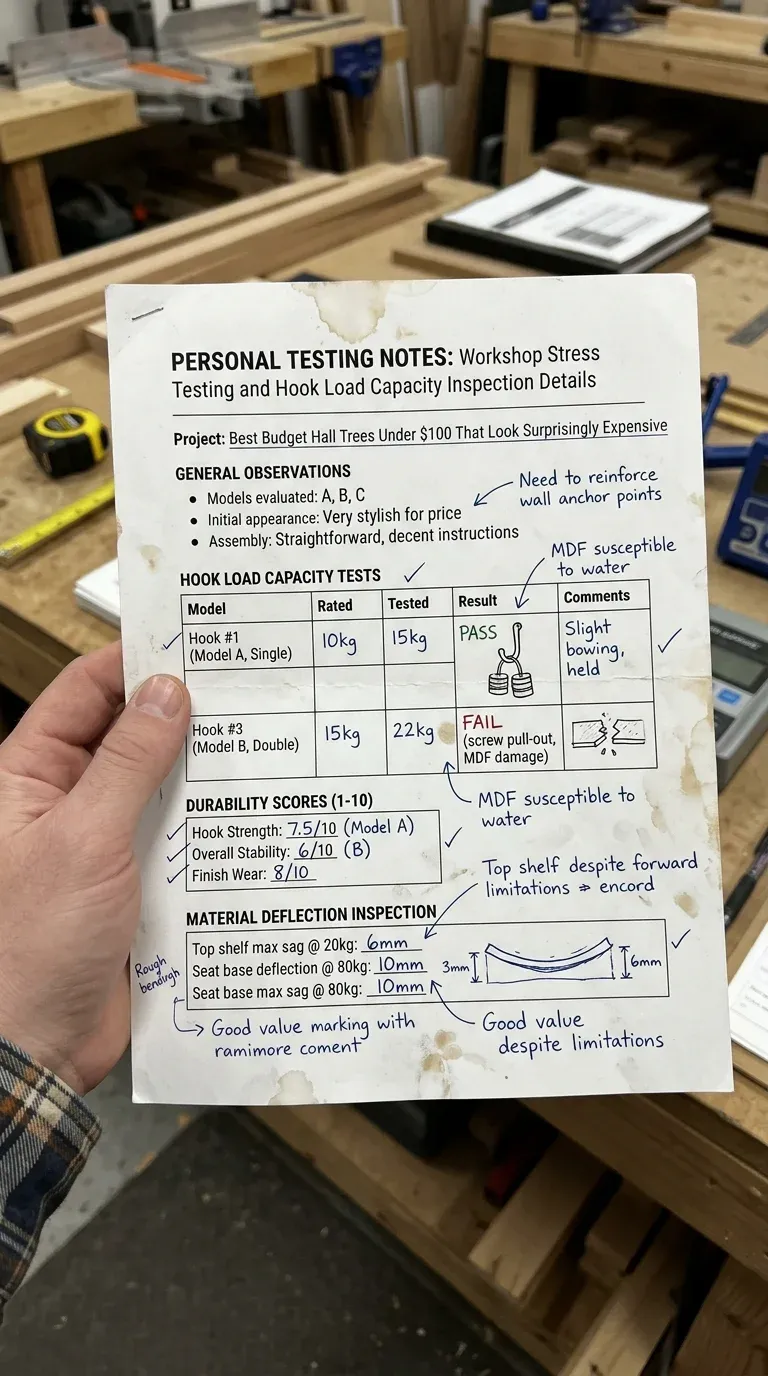 PERSONAL TESTING NOTES: Workshop Stress
Testing and Hook Load Capacity Inspection Details
Project: Best Budget Hall Trees Under $100 That Look Surprisingly Expensive
GENERAL OBSERVATIONS
• Models evaluated: A, B, C
• Initial appearance: Very stylish for price
• Assembly: Straightforward, decent instructions
Need to reinforce
wall anchor points
MDF susceptible
to water
HOOK LOAD CAPACITY TESTS
Model Rated Tested Result Comments
Hook #1
(Model A, Single)
10kg
15kg
PASS
Slight
bowing,
held
Hook #3
(Model B, Double)
15kg
22kg
FAIL
(screw pull-out,
MDF damage)
MDF susceptible to
water
DURABILITY SCORES (1-10)
Hook Strength: 7.5/10 (Model A)
Overall Stability: 6/10 (B)
Finish Wear: 8/10
Top shelf despite forward
limitations ⇒ encord
MATERIAL DEFLECTION INSPECTION
Top shelf max sag @ 20kg: 6mm
Seat base deflection @ 80kg: 10mm
Seat base max sag @ 80kg: 10mm
3mm
6mm
Rough
benough
Good value marking with
ramimore coment
Good value
despite limitations